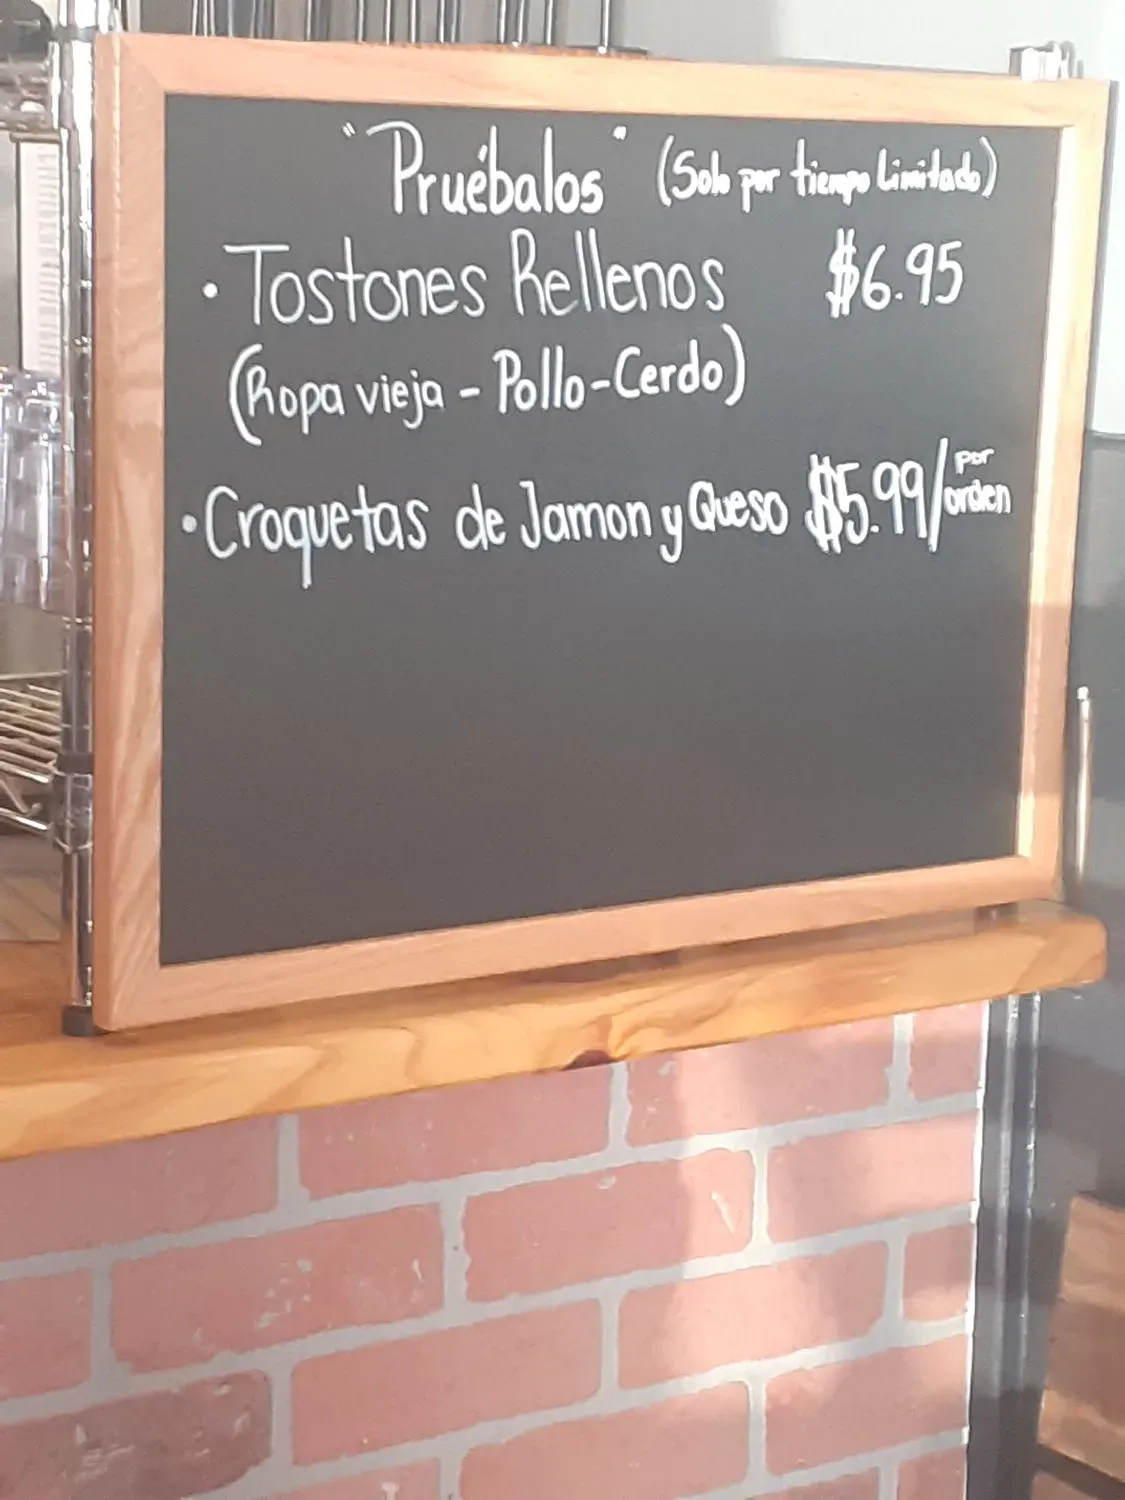 "Pruébalos" (Solo por tiempo Limitado)
• Tostones Rellenos $6.95
(Ropa vieja - Pollo-Cerdo)
• Croquetas de Jamon y Queso $5.99/por orden